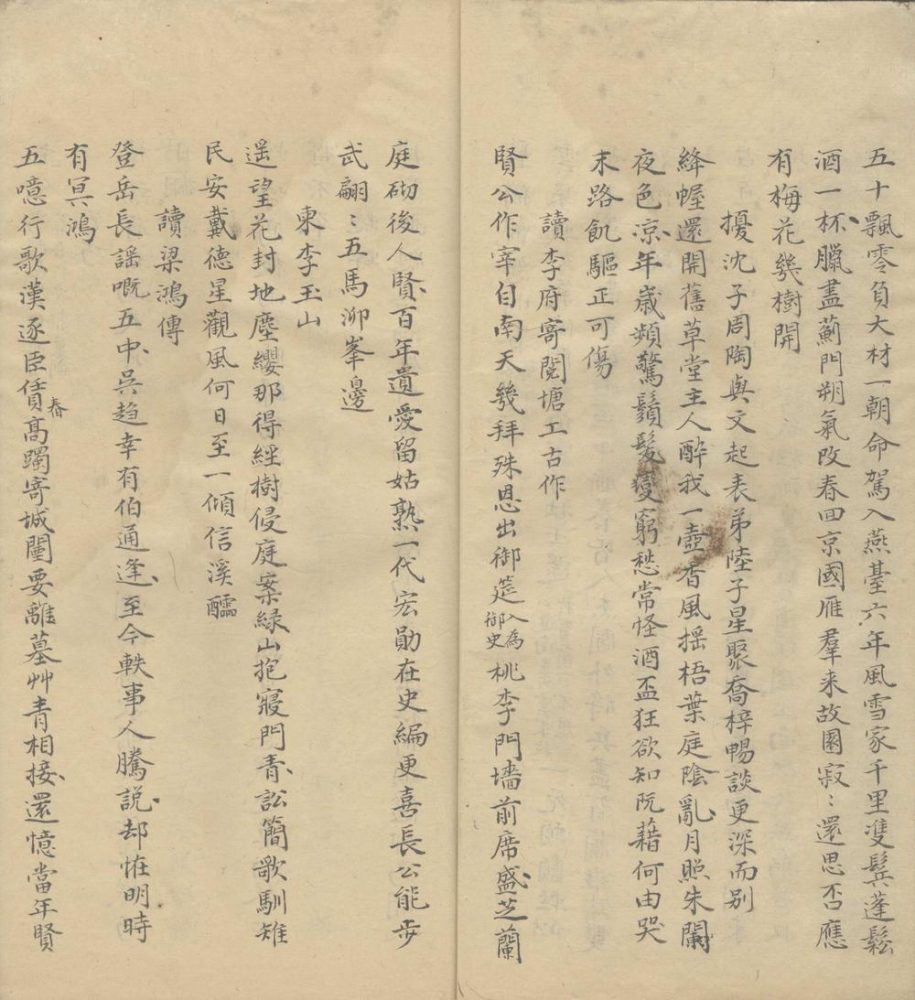 五十飄零負大材一朝命駕入燕臺六年風雪家千里雙鬂蓬鬆
酒一杯臘盡薊門朔氣改春回京國雁羣来故園寂〻還思否應
有梅花幾樹開
擾沈子周陶與文起表弟陸子星聚喬梓暢談更深而别
絳幄還開舊草堂主人醉我一壺香風揺梧葉庭陰亂月照朱闌
夜色凉年嵗頻驚鬚髮變窮愁常怪酒盃狂欲知阮藉何由哭
末路飢驅正可傷
讀李府寄閱塘工古作
賢公作宰自南天幾拜殊恩出御筵入為御史桃李門墻前席盛芝蘭
庭砌後人賢百年遺愛留姑熟一代宏勛在史編更喜長公能步
武翩〻五馬泖峯邊
柬李玉山
遥望花封地塵纓那得經樹侵庭案緑山抱寢門青訟簡歌馴雉
民安戴德星觀風何日至一傾信溪醽
讀梁鴻傳
登岳長謡嘅五中吳趋幸有伯通逢至今軼事人騰説却恠明時
有冥鴻
五噫行歌漢逐臣賃舂髙躅寄城闉要離墓艸青相接還憶當年賢